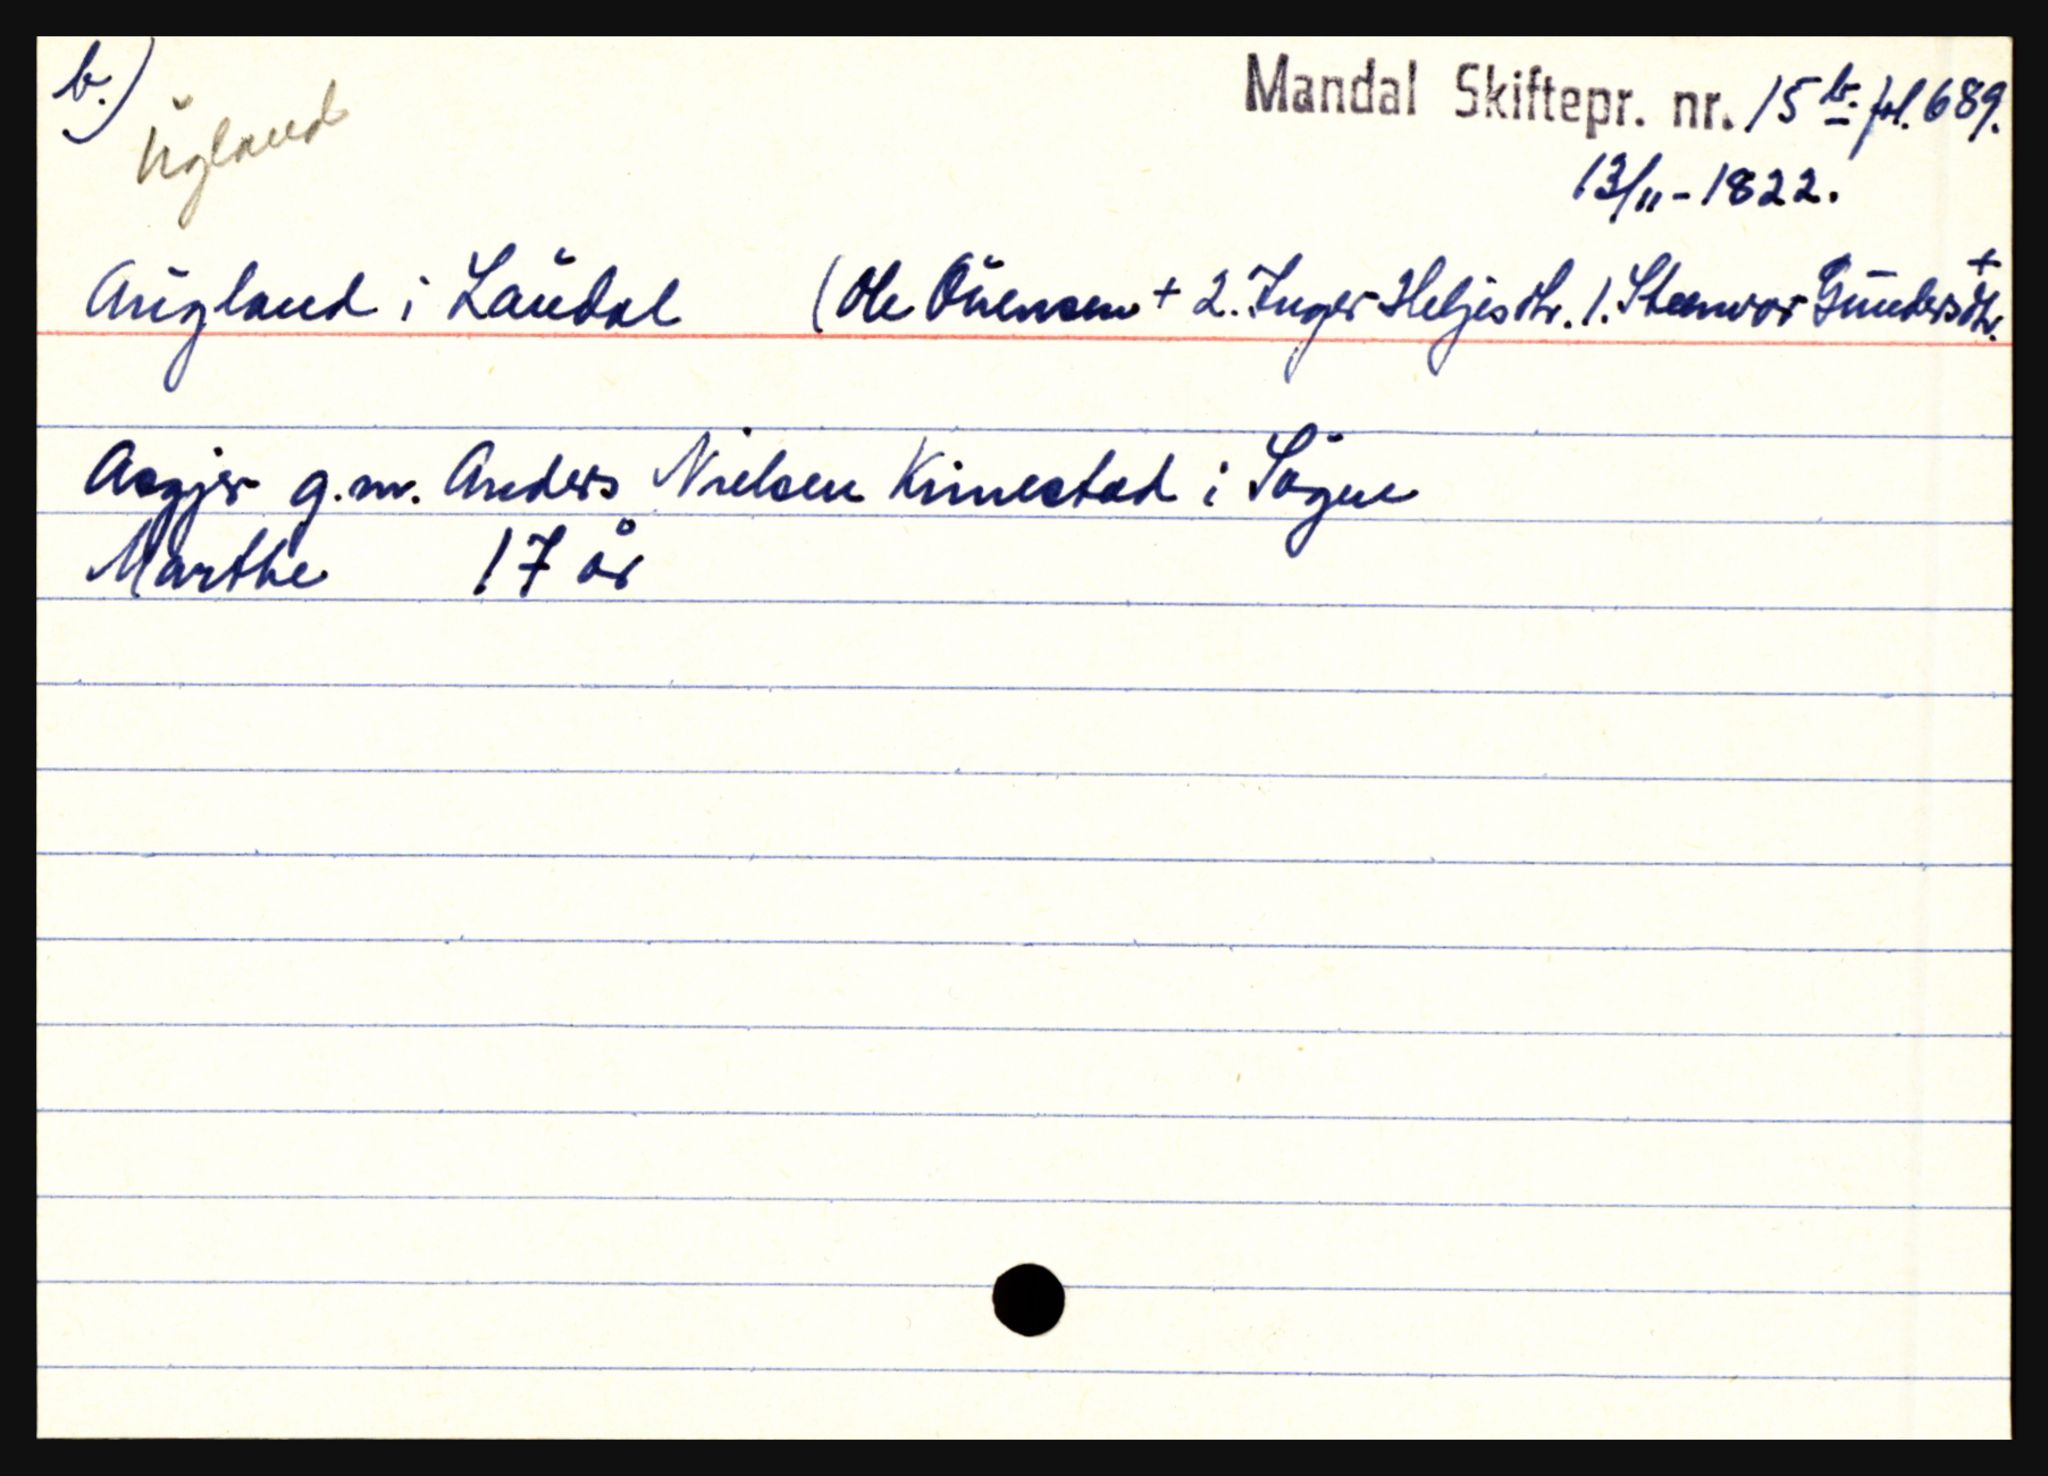 b.)
Ugland
Mandal Skiftepr. nr. 15 b. fol. 689.
13/11 - 1822.
Augland i Laudal (Ole Ouensen + 2. Inger Heljesdtr. 1. Steenvor Gundersdtr. +
Asgjer g.m. Anders Nielsen Kimestad i Søgne
Marthe 17 år